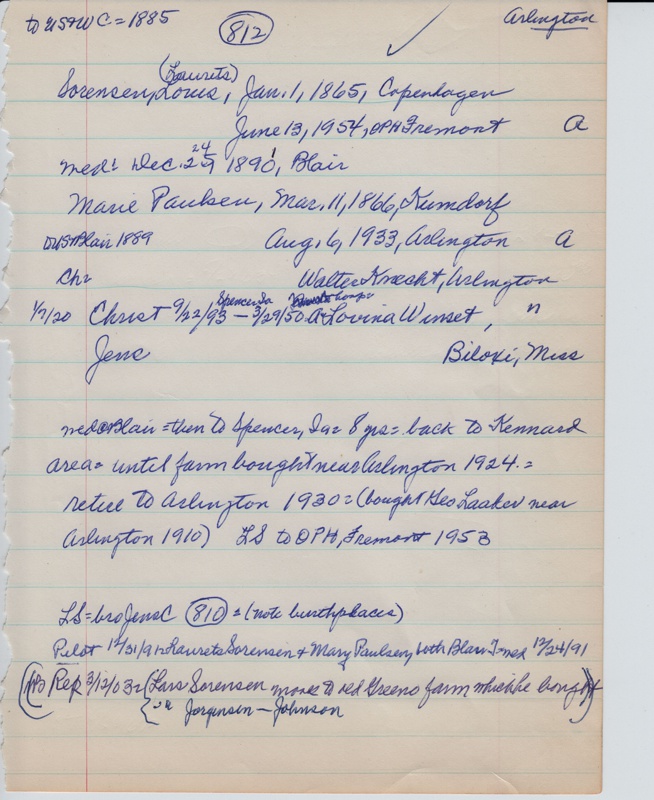 to US+WC=1885 (812) Arlington
(Laurets)
Sorensen, Louis, Jan. 1, 1865, Copenhagen
June 13, 1954, OPH Fremont A
med: Dec. 24 1890, Blair
Marie Paulsen, Mar. 11, 1866, Kumdorf
Blair 1889 Aug. 6, 1933, Arlington A
Ch= Walter Knecht, Arlington
Spencer, Ia
1/7/20 Christ 9/22/93 - 3/29/50 A Lovina Winset, "
Jens Biloxi, Miss
med @ Blair = then to Spencer, Ia = 8 yrs = back to Kennard
area = until farm bought near Arlington 1924 =
retire to Arlington 1930 = (bought Geo Laaker near
Arlington 1910) LS to OPH, Fremont 1953
LS = bro Jens C (810) = (note birthplaces)
Pilot 12/31/91= Laurets Sorensen + Mary Paulsen, both Blair T= med 12/24/91
Rep 3/12/03= (Lars Sorensen moves to old Greeno farm which he bought)
Jorgensen - Johnson